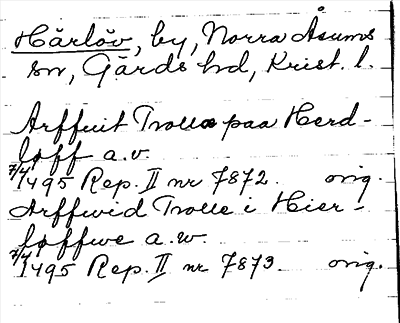 Hårlöv, by, Norra Åsums
sn, Gärds hd, Krist. l.
Arffuit Trolle paa Herd-
løff a.v.
7/4 1495 Rep. II nr 7872. orig.
Arffwid Trolle i Hier-
løffwe a.w.
7/4 1495 Rep. II nr 7873. orig.